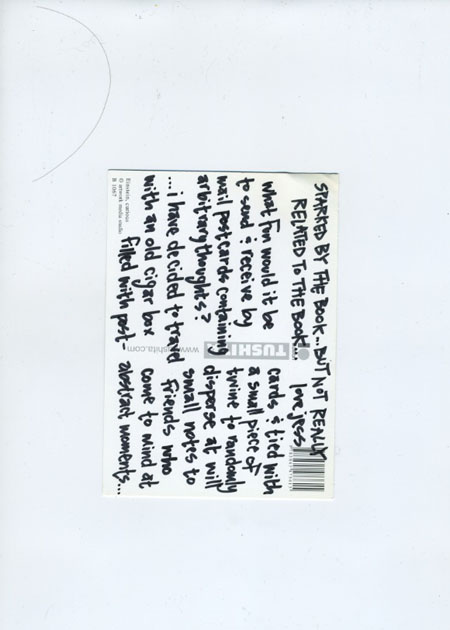 SPARKED BY THE BOOK...BUT NOT REALLY
RELATED TO THE BOOK... love, jess
what fun would it be
to send & receive by
mail postcards containing
arbitrary thoughts?
... i have decided to travel
with an old cigar box
filled with post-
cards & tied with
a small piece of
twine to randomly
disperse at will
small notes to
friends who
come to mind at
abstract moments...
TUSHI
www. shita.com
Einstein, curious
© artwork media studio
B 1067